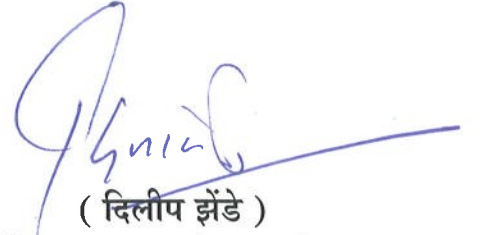 ( दिलीप झेंडे )